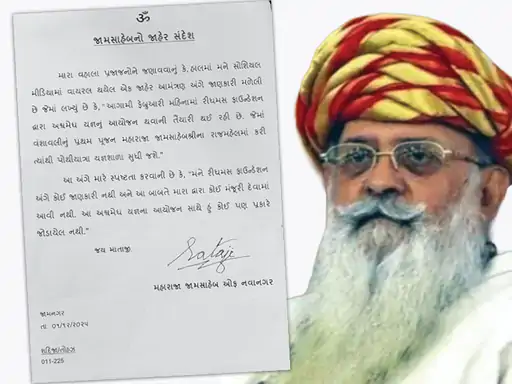 ૐ
જામસાહેબનો જાહેર સંદેશ
મારા વહાલા પ્રજાજનોને જણાવવાનું કે, હાલમાં મને સોશિયલ
મીડિયામાં વાયરલ થયેલ એક જાહેર આમંત્રણ અંગે જાણકારી મળેલી
છે જેમાં લખ્યું છે કે, "આગામી ફેબ્રુઆરી મહિનામાં રીધમસ ફાઉન્ડેશન
દ્વારા અશ્વમેધ યજ્ઞનું આયોજન થવાની તૈયારી થઈ રહી છે. જેમાં
વંશાવલીનું પ્રથમ પૂજન મહારાજા જામસાહેબશ્રીના રાજમહેલમાં કરી
ત્યાંથી પોથીયાત્રા યજ્ઞશાળા સુધી જશે."
આ અંગે મારે સ્પષ્ટતા કરવાની છે કે, "મને રીધમસ ફાઉન્ડેશન
અંગે કોઈ જાણકારી નથી અને આ બાબતે મારા દ્વારા કોઈ મંજૂરી દેવામાં
આવી નથી. આ અશ્વમેધ યજ્ઞના આયોજન સાથે હું કોઈ પણ પ્રકારે
જોડાયેલ નથી."
જય માતાજી
મહારાજા જામસાહેબ ઓફ નવાનગર
જામનગર
તા ૦૧/૧૨/૨૦૨૫
011-225